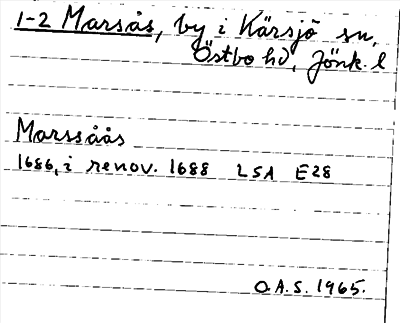 1-2 Marsås, by i Kärsjö sn,
Östbo hd, Jönk. l
Marssåås
1686, i renov. 1688 LSA E28
O.A.S. 1965.